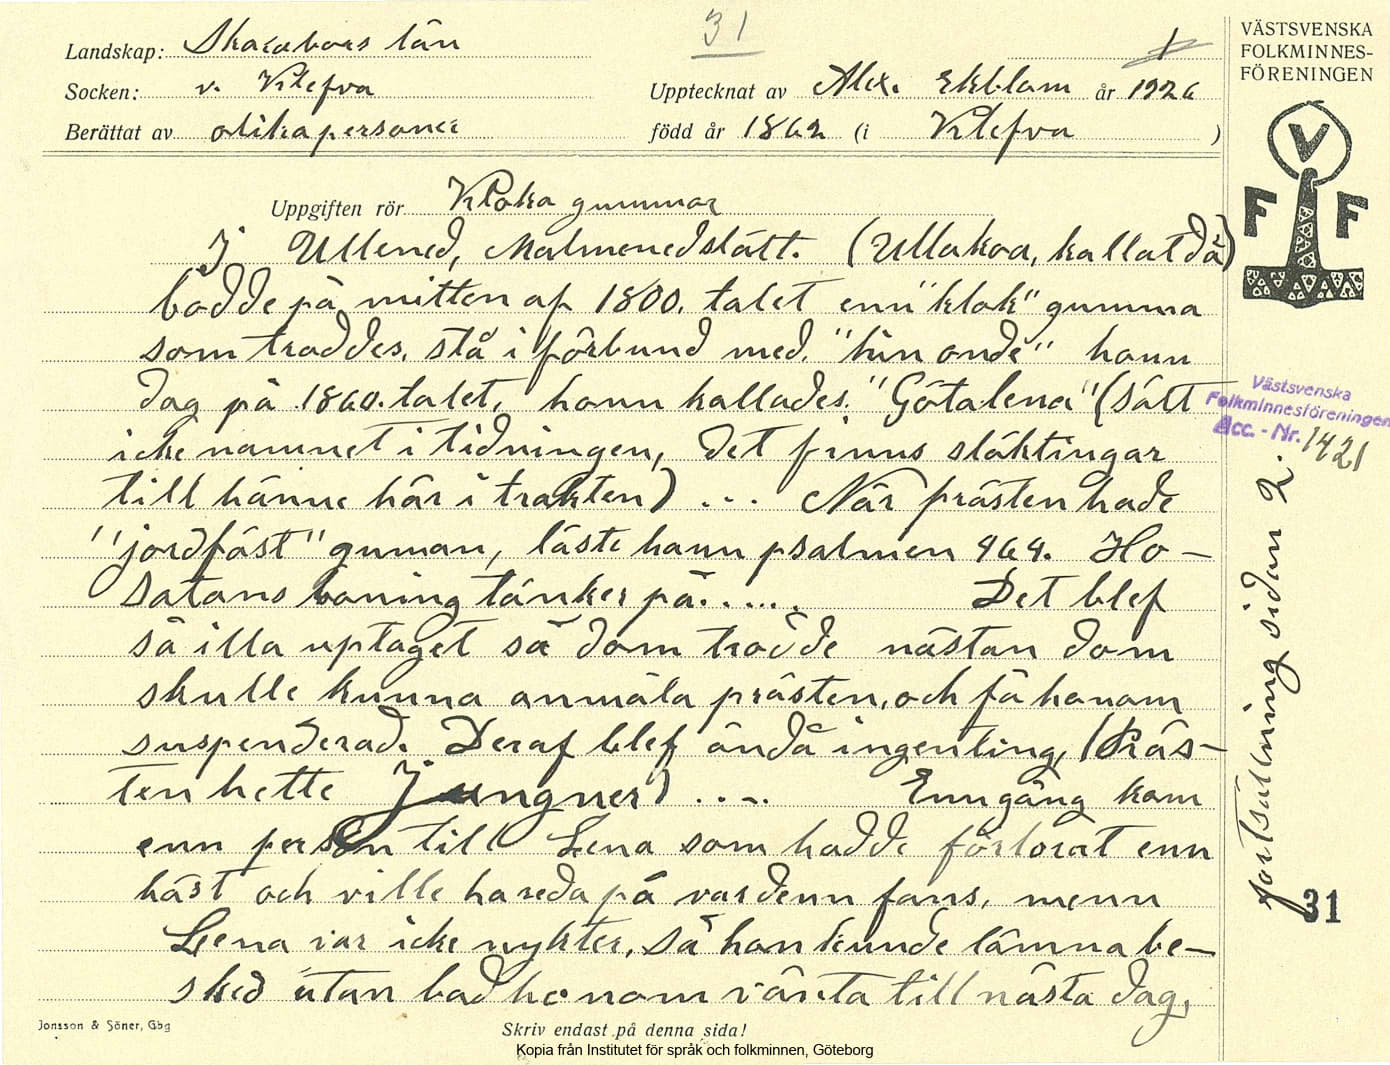 31
1
Landskap: Skarabors län
Socken: v. Klefva
Upptecknat av Alex. Ekblom år 1926
Berättat av olika personer
född år 1862 (i Klefva )
VÄSTSVENSKA
FOLKMINNES-
FÖRENINGEN
V
F F
Uppgiften rör Kloka gummor
I Ullened, Malmenedslätt. (Ullakoa, kallat då)
bodde på mitten af 1800. talet enn "klok" gumma
som troddes. stå i förbund med. "hin onde" honn
dog på 1860. talet, honn kallades. "Götalena" (sätt
icke namnet i tidningen, det finns släktingar
till hänne här i trakten) ... När prästen hade
"jordfäst" guman, läste hann psalmen 464. Ho-
Satans boning tänker på......  Det blef
så illa uptaget så dom trodde nästan dom
skulle kunna anmäla prästen, och få honom
suspenderad. Deraf blef ändå ingenting, (Präs-
ten hette Jungner) .... Enngång kom
enn person till Lena som hadde förlorat enn
häst och ville ha reda på var denn fans, menn
Lena var icke nykter, så hon kunde lämna be-
sked utan bad honom vänta till nästa dag,
Västsvenska
Folkminnesföreningen
Acc. - Nr. 1421
fortsättning sidan 2.
31
Jonsson & Söner, Gbg
Skriv endast på denna sida!
Kopia från Institutet för språk och folkminnen, Göteborg